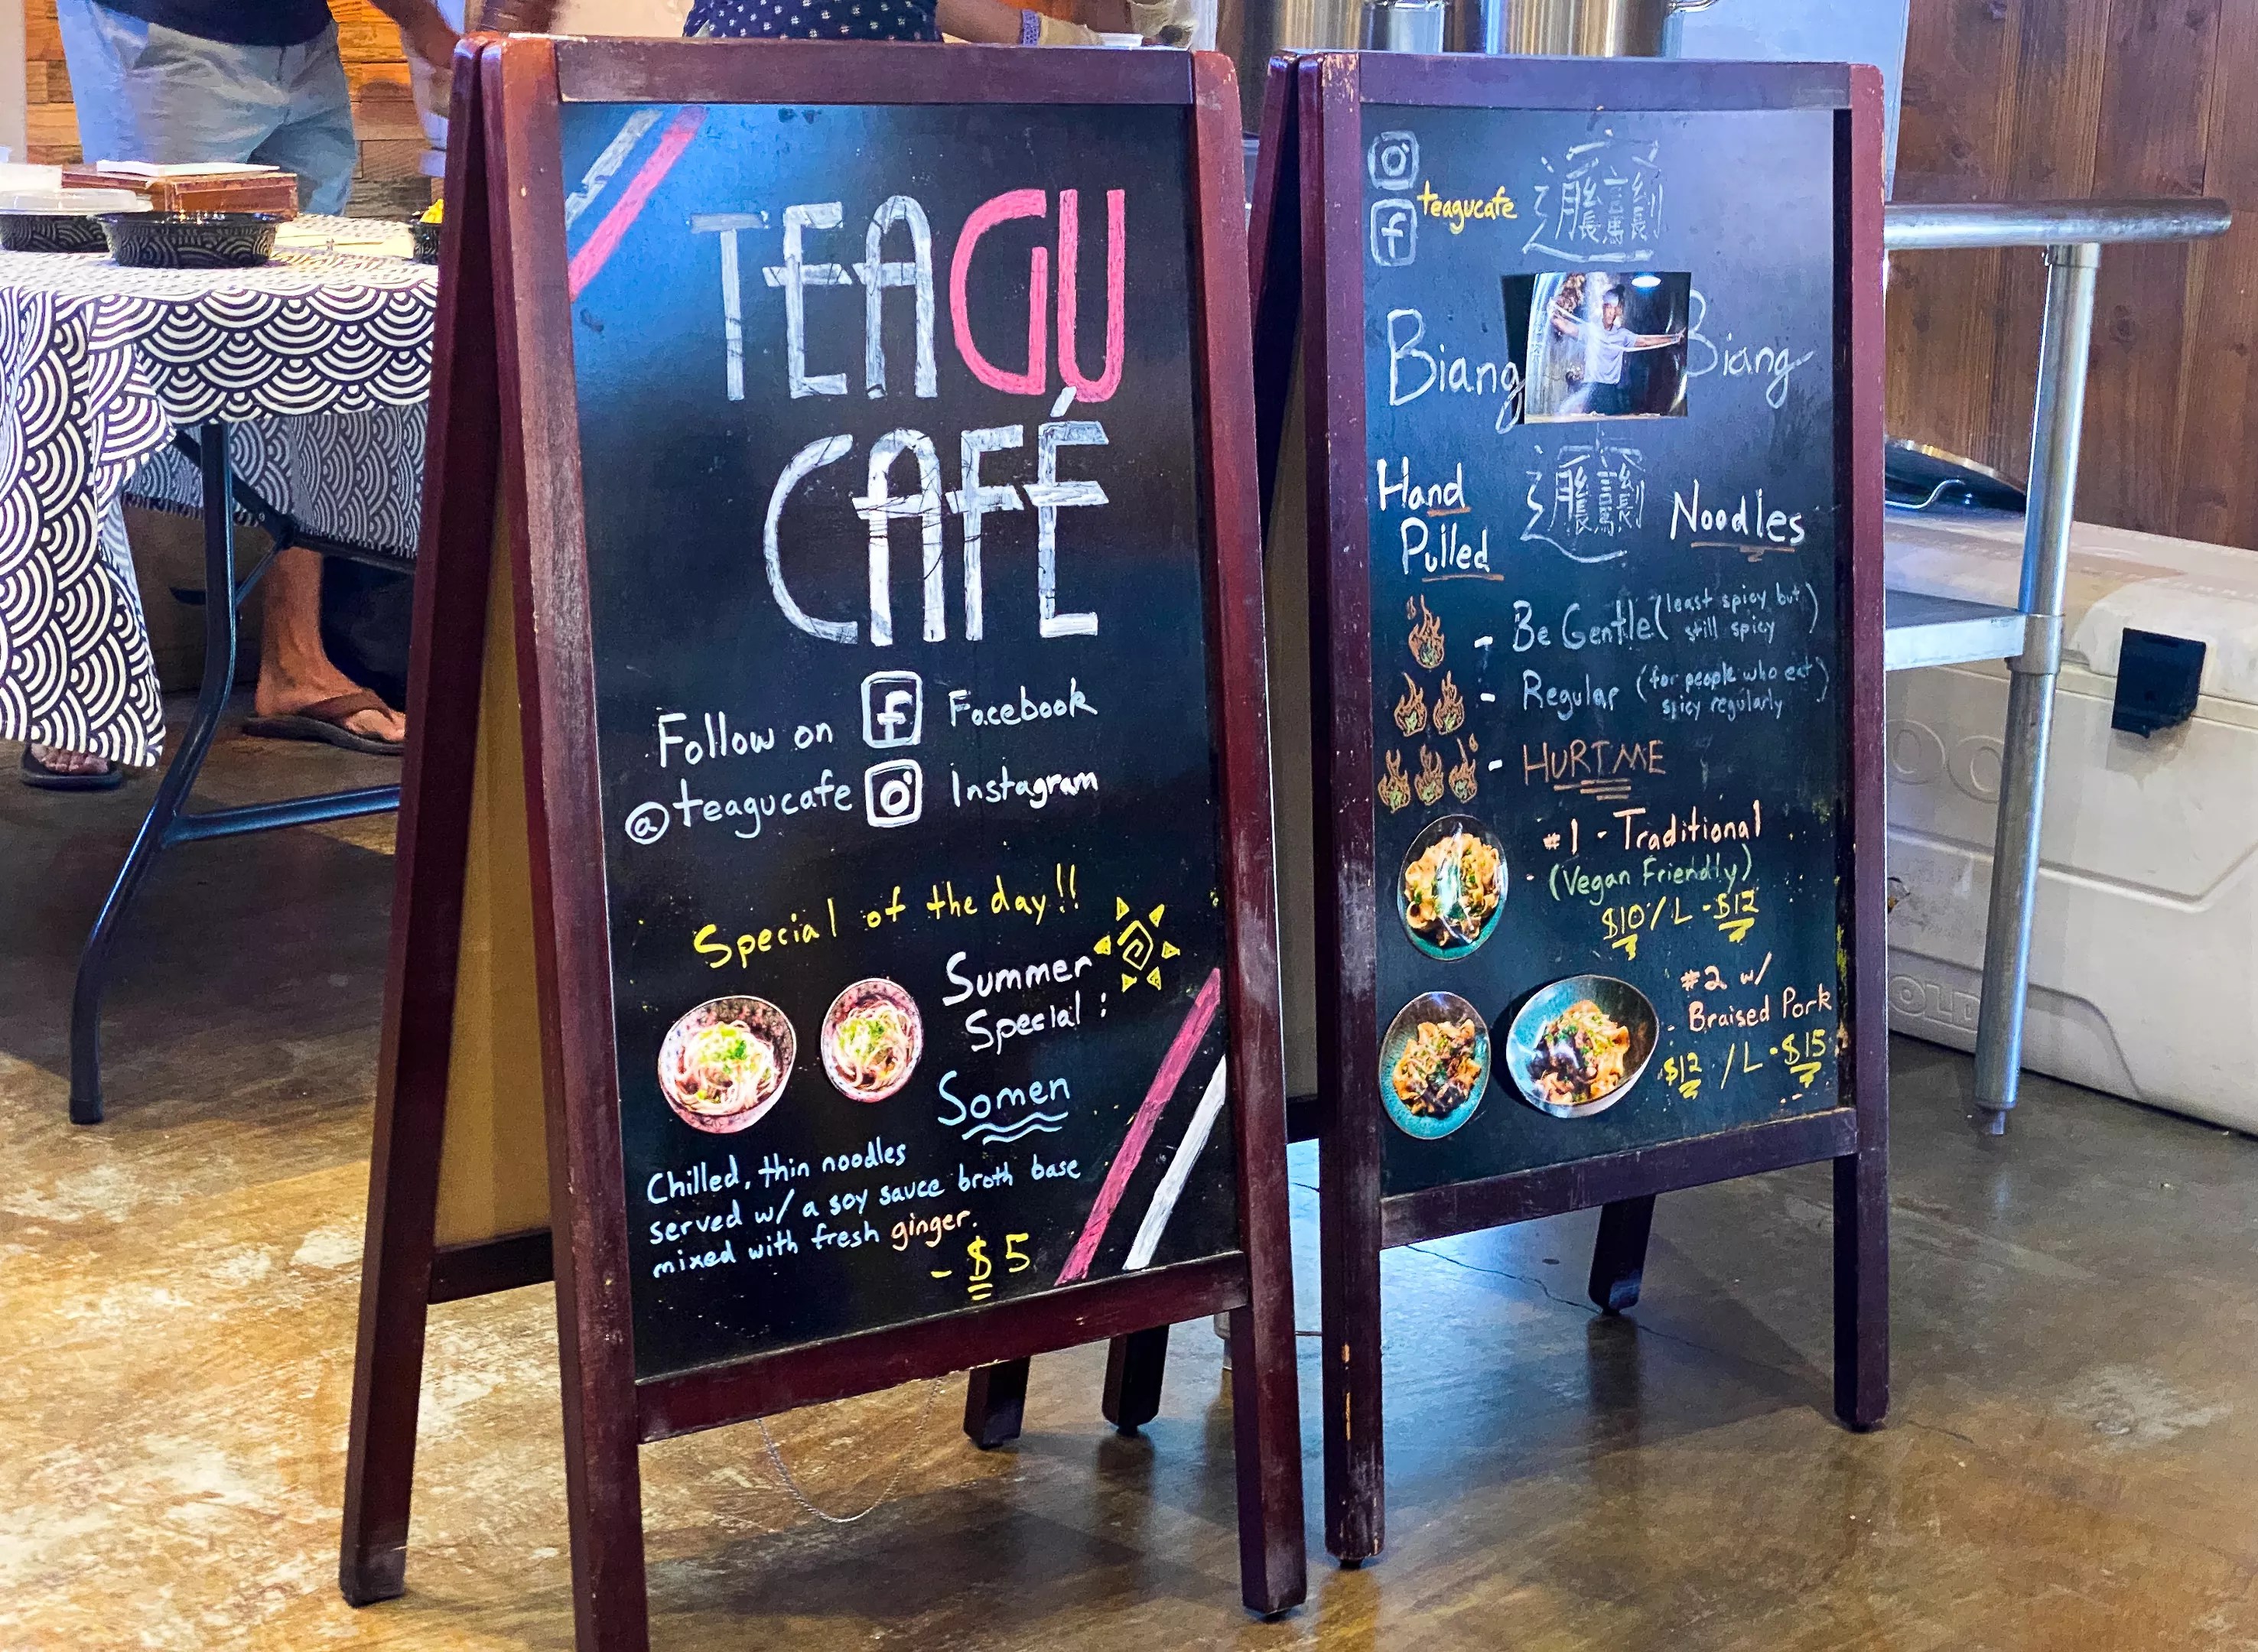 TEAGU
CAFÉ
Follow on f Facebook
@teagucafe Instagram
Special of the day!!
Summer
Special:
Somen
Chilled, thin noodles
served w/ a soy sauce broth base
mixed with fresh ginger.
- $5
f teagucafe
𰻞
Biang Biang
𰻞
Hand
Pulled
Noodles
- Be Gentle (least spicy but
still spicy)
- Regular (for people who eat
spicy regularly)
- HURT ME
#1 - Traditional
(Vegan Friendly)
$10 / L - $12
#2 w/
Braised Pork
$12 / L - $15